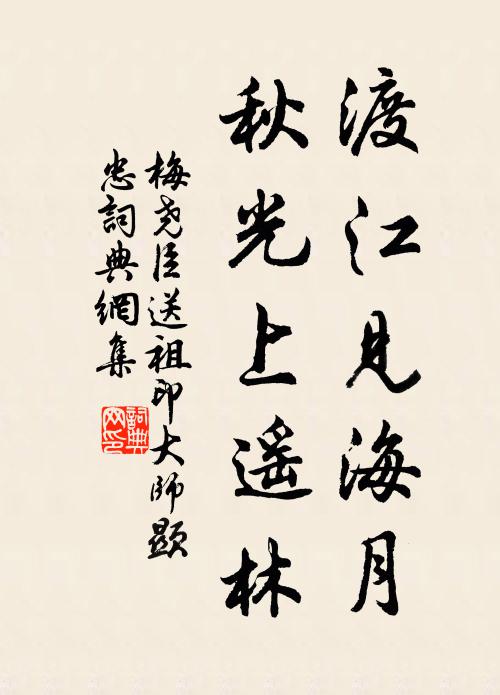 渡江见海月
秋光上遥林
梅尧臣送祖印大师显
忠词典網集
詞典
网印